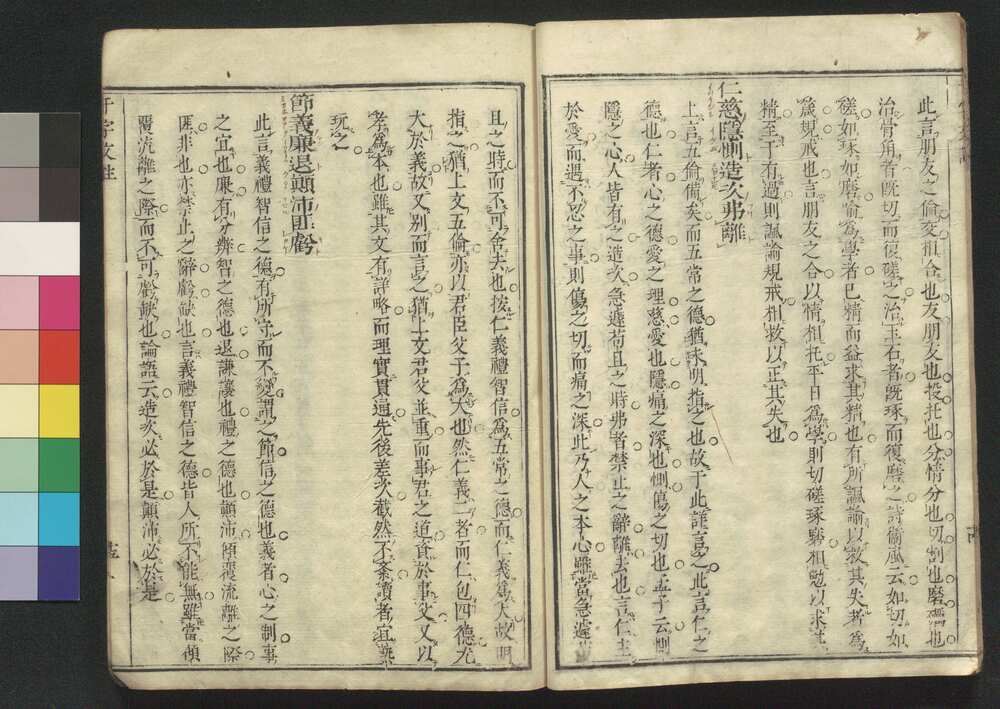 此言朋友之倫交相合也友朋友也投托也分情分也切割也磨礪也
治骨角者既切而復磋之治玉石者既琢而復磨之詩衛風云如切如
磋如琢如磨喻為學者已精而益求其精也有所諷諭以救其失者為
箴規戒也言朋友之合以情相托平日為學則切磋琢磨相勉以求其
精至于有過則諷諭規戒相救以正其失也
仁慈隱惻造次弗離
上言五倫備矣而五常之德猶未明指之也故于此詳言之此言仁之
德也仁者心之德愛之理慈愛也隱痛之深也惻傷之切也孟子云惻
隱之心人皆有之造次急遽苟且之時弗者禁止之辭離去也言仁主
於愛而遇不忍之事則傷之切而痛之深此乃人之本心雖當急遽苟
且之時而不可舍去也按仁義禮智信為五常之德而仁義為大故明
指之猶上文五倫亦以君臣父子為大也然仁義二者而仁包四德尤
大於義故又別而言之猶上文君父並重而事君之道資於事父又以
孝為本也雖其文有詳略而理實貫通先後差次截然不紊讀者宜熟
玩之
節義廉退顛沛匪虧
此言義禮智信之德有所守而不變謂之節信之德也義者心之制事
之宜也廉有分辨智之德也退謙讓也禮之德也顛沛傾覆流離之際
匪非也亦禁止之辭虧缺也言義禮智信之德皆人所不能無雖當傾
覆流離之際而不可虧缺也論語云造次必於是顛沛必於是